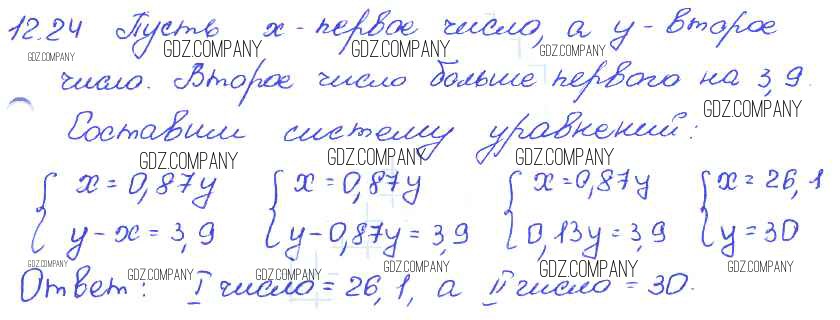 12.24 Пусть x - первое число, а y - второе
GDZ.COMPANY GDZ.COMPANY GDZ.COMPANY GDZ.COMPANY
число. Второе число больше первого на 3,9.
GDZ.COMPANY
Составим систему уравнений:
GDZ.COMPANY GDZ.COMPANY GDZ.COMPANY GDZ.COMPANY
{ x = 0,87y { x = 0,87y { x = 0,87y { x = 26,1
y - x = 3,9 y - 0,87y = 3,9 0,13y = 3,9 y = 30
GDZ.COMPANY GDZ.COMPANY GDZ.COMPANY GDZ.COMPANY GDZ.COMPANY GDZ.COMPANY
Ответ: I число = 26,1, а II число = 30.